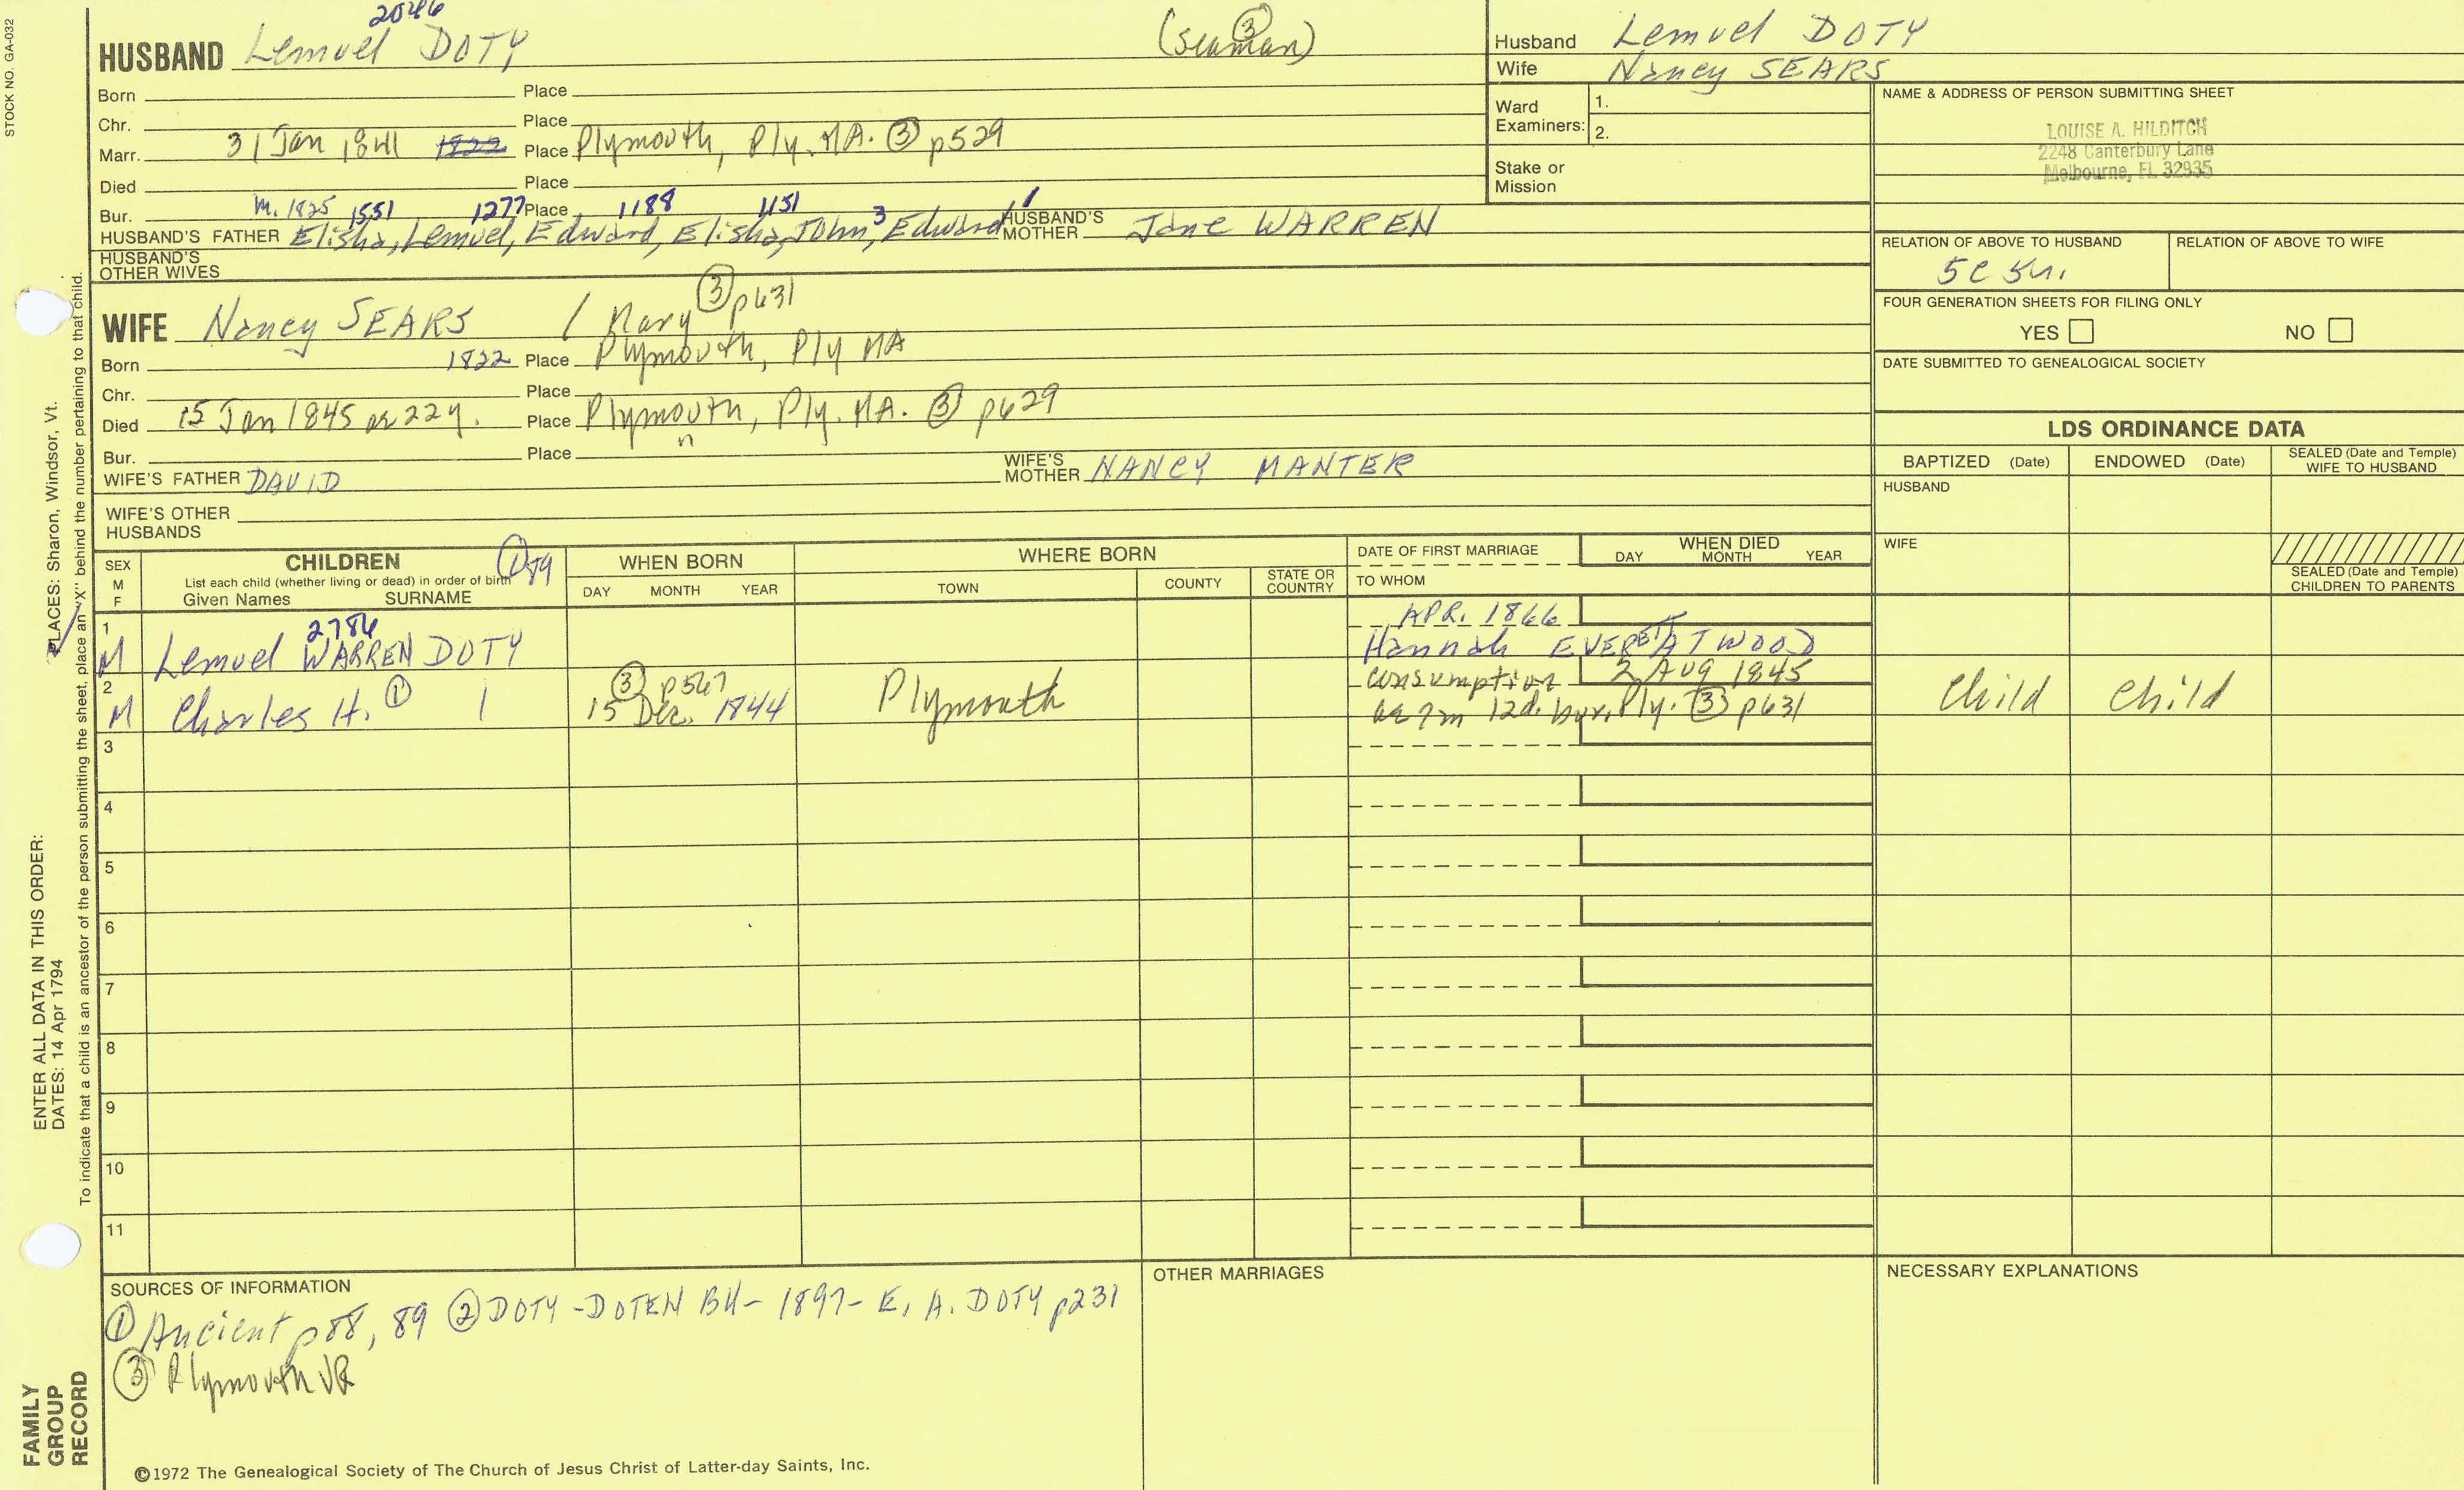 STOCK NO. GA-032
2046
HUSBAND Lemuel DOTY (seaman) ③
Born Place
Chr. Place
Marr. 31 Jan 1841 1822 Place Plymouth, Ply. MA. ③ p529
Died Place
Bur. Place
m. 1825 1551 1277 1188 1151 3 1
HUSBAND'S FATHER Elisha, Lemuel, Edward, Elisha, John, Edward HUSBAND'S MOTHER Jane WARREN
HUSBAND'S OTHER WIVES
WIFE Nancy SEARS / Mary ③ p631
Born 1822 Place Plymouth, Ply MA
Chr. Place
Died 15 Jan 1845 ae 22y. Place Plymouth, Ply. MA. ③ p629
Bur. Place
WIFE'S FATHER DAVID WIFE'S MOTHER NANCY MANTER
n
WIFE'S OTHER HUSBANDS
Husband Lemuel DOTY
Wife Nancy SEARS
Ward Examiners: 1.
2.
Stake or Mission
NAME & ADDRESS OF PERSON SUBMITTING SHEET
LOUISE A. HILDITCH
2248 Canterbury Lane
Melbourne, FL 32935
RELATION OF ABOVE TO HUSBAND RELATION OF ABOVE TO WIFE
FOUR GENERATION SHEETS FOR FILING ONLY
YES NO
DATE SUBMITTED TO GENEALOGICAL SOCIETY
LDS ORDINANCE DATA
BAPTIZED (Date) ENDOWED (Date) SEALED (Date and Temple) WIFE TO HUSBAND
HUSBAND
WIFE
SEALED (Date and Temple) CHILDREN TO PARENTS
SEX M F
CHILDREN ① 89
List each child (whether living or dead) in order of birth
Given Names SURNAME
WHEN BORN
DAY MONTH YEAR
WHERE BORN
TOWN COUNTY STATE OR COUNTRY
DATE OF FIRST MARRIAGE
TO WHOM
WHEN DIED
DAY MONTH YEAR
1 2786 APR. 1866
M Lemuel WARREN DOTY Hannah EVERETT ATWOOD
2 ③ p567 consumption 2 AUG 1845
M Charles H. ① 1 15 Dec. 1844 Plymouth ae 7m 12d. bur. Ply. ③ p631 Child Child
3
4
5
6
7
8
9
10
11
SOURCES OF INFORMATION
① Ancient p88, 89 ② DOTY-DOTEN BH- 1897- E. A. DOTY p231
③ Plymouth VR
OTHER MARRIAGES
NECESSARY EXPLANATIONS
©1972 The Genealogical Society of The Church of Jesus Christ of Latter-day Saints, Inc.
FAMILY GROUP RECORD
ENTER ALL DATA IN THIS ORDER:
DATES: 14 Apr 1794
PLACES: Sharon, Windsor, Vt.
To indicate that a child is an ancestor of the person submitting the sheet, place an "X" behind the number pertaining to that child.